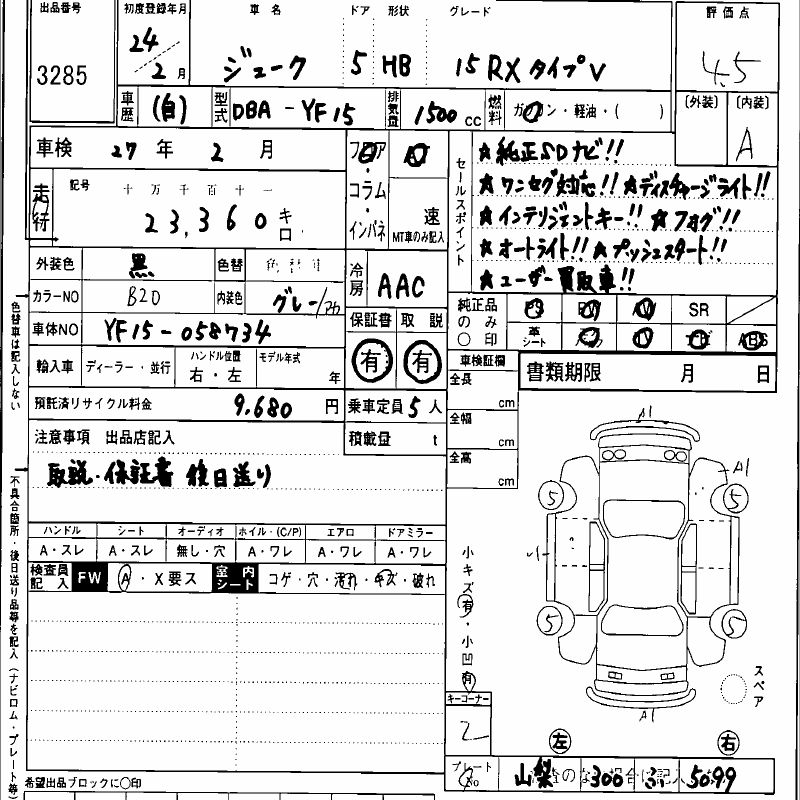 出品番号 初度登録年月 車名 ドア 形状 グレード 評価点
3285 24/2月 ジューク 5 HB 15RXタイプV 4.5
〔外装〕 〔内装〕 A
車歴 (自) 型式 DBA-YF15 排気量 1500cc 燃料 ガソリン・軽油・( )
車検 27年2月 フロア・コラム・インパネ AT 速 MT車のみ記入
走行 記号 十万千百十一
23,360キロ
セールスポイント
★純正SDナビ!!
★ワンセグ対応!! ★ディスチャージライト!!
★インテリジェントキー!! ★フォグ!!
★オートライト!! ★プッシュスタート!!
★ユーザー買取車!!
外装色 黒 色替 色替車 冷房 AAC
カラーNO B20 内装色 グレー/
純正品のみ〇印 PS PW AW SR
革シート ナビ ABS
車体NO YF15-058734 保証書 有 取説 有
輸入車 ディーラー・並行 ハンドル位置 右・左 モデル年式 年
車検証欄 書類期限 月 日
全長 cm
全幅 cm
全高 cm
預託済リサイクル料金 9,680円 乗車定員5人
注意事項 出品店記入 積載量 t
取説・保証書 後日送り
ハンドル シート オーディオ ホイル・(C/P) エアロ ドアミラー
A・スレ A・スレ 無し・穴 A・ワレ A・ワレ A・ワレ
検査員記入 FW A・X要ス 室内シート コゲ・穴・汚れ・キズ・破れ
小キズ有・小凹有
A1
A1
5 5
5 5
A1
スペア
キーコーナー
2
左 右
プレートNo 山梨 300 5099
希望出品ブロックに〇印
色替車は記入しない
不具合箇所・後日送り品等を記入(ナビロム・プレート等)